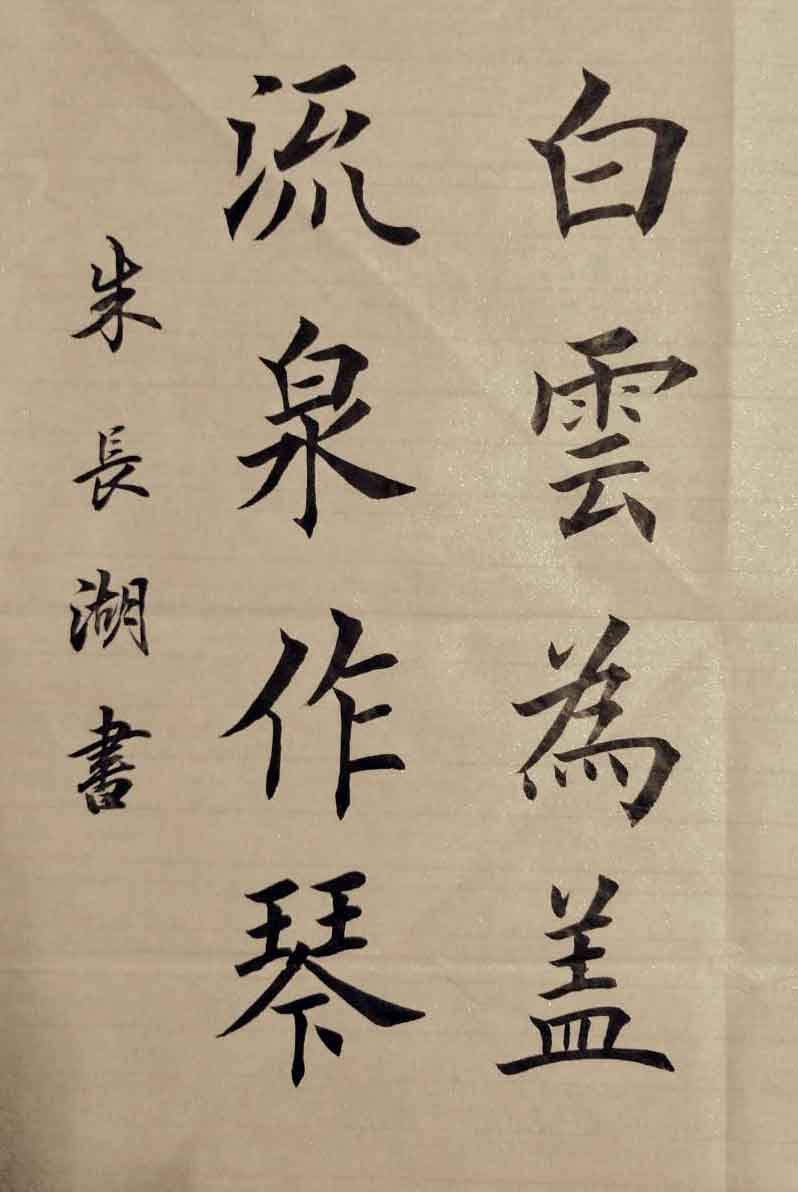 白雲為盖
流泉作琴
朱長湖書